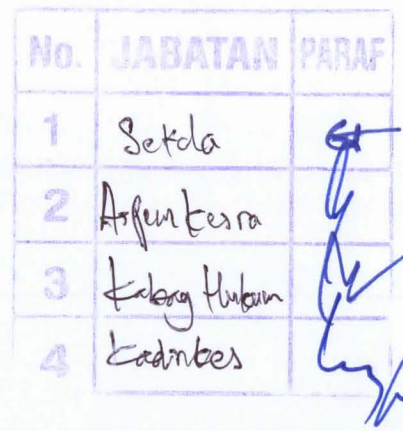 No. JABATAN PARAF
1 Sekda
2 Aspem kesra
3 Kabag Hukum
4 Kadinkes